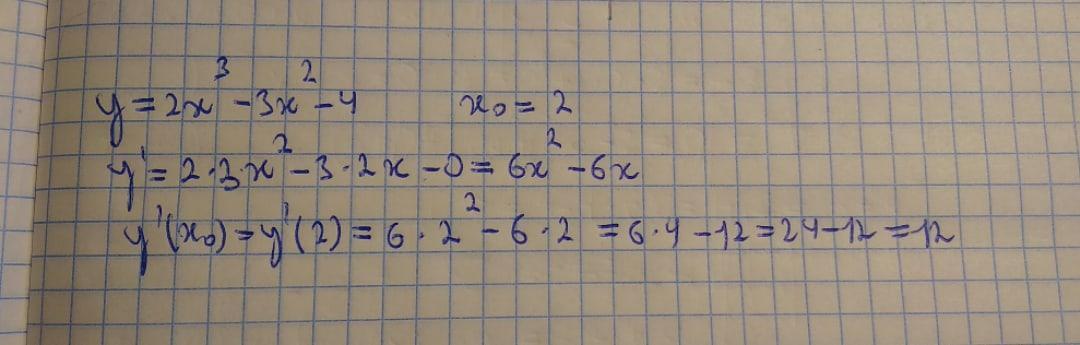 y = 2x³ - 3x² - 4 x₀ = 2
y' = 2·3·x² - 3·2x - 0 = 6x² - 6x
y'(x₀) = y'(2) = 6·2² - 6·2 = 6·4 - 12 = 24 - 12 = 12